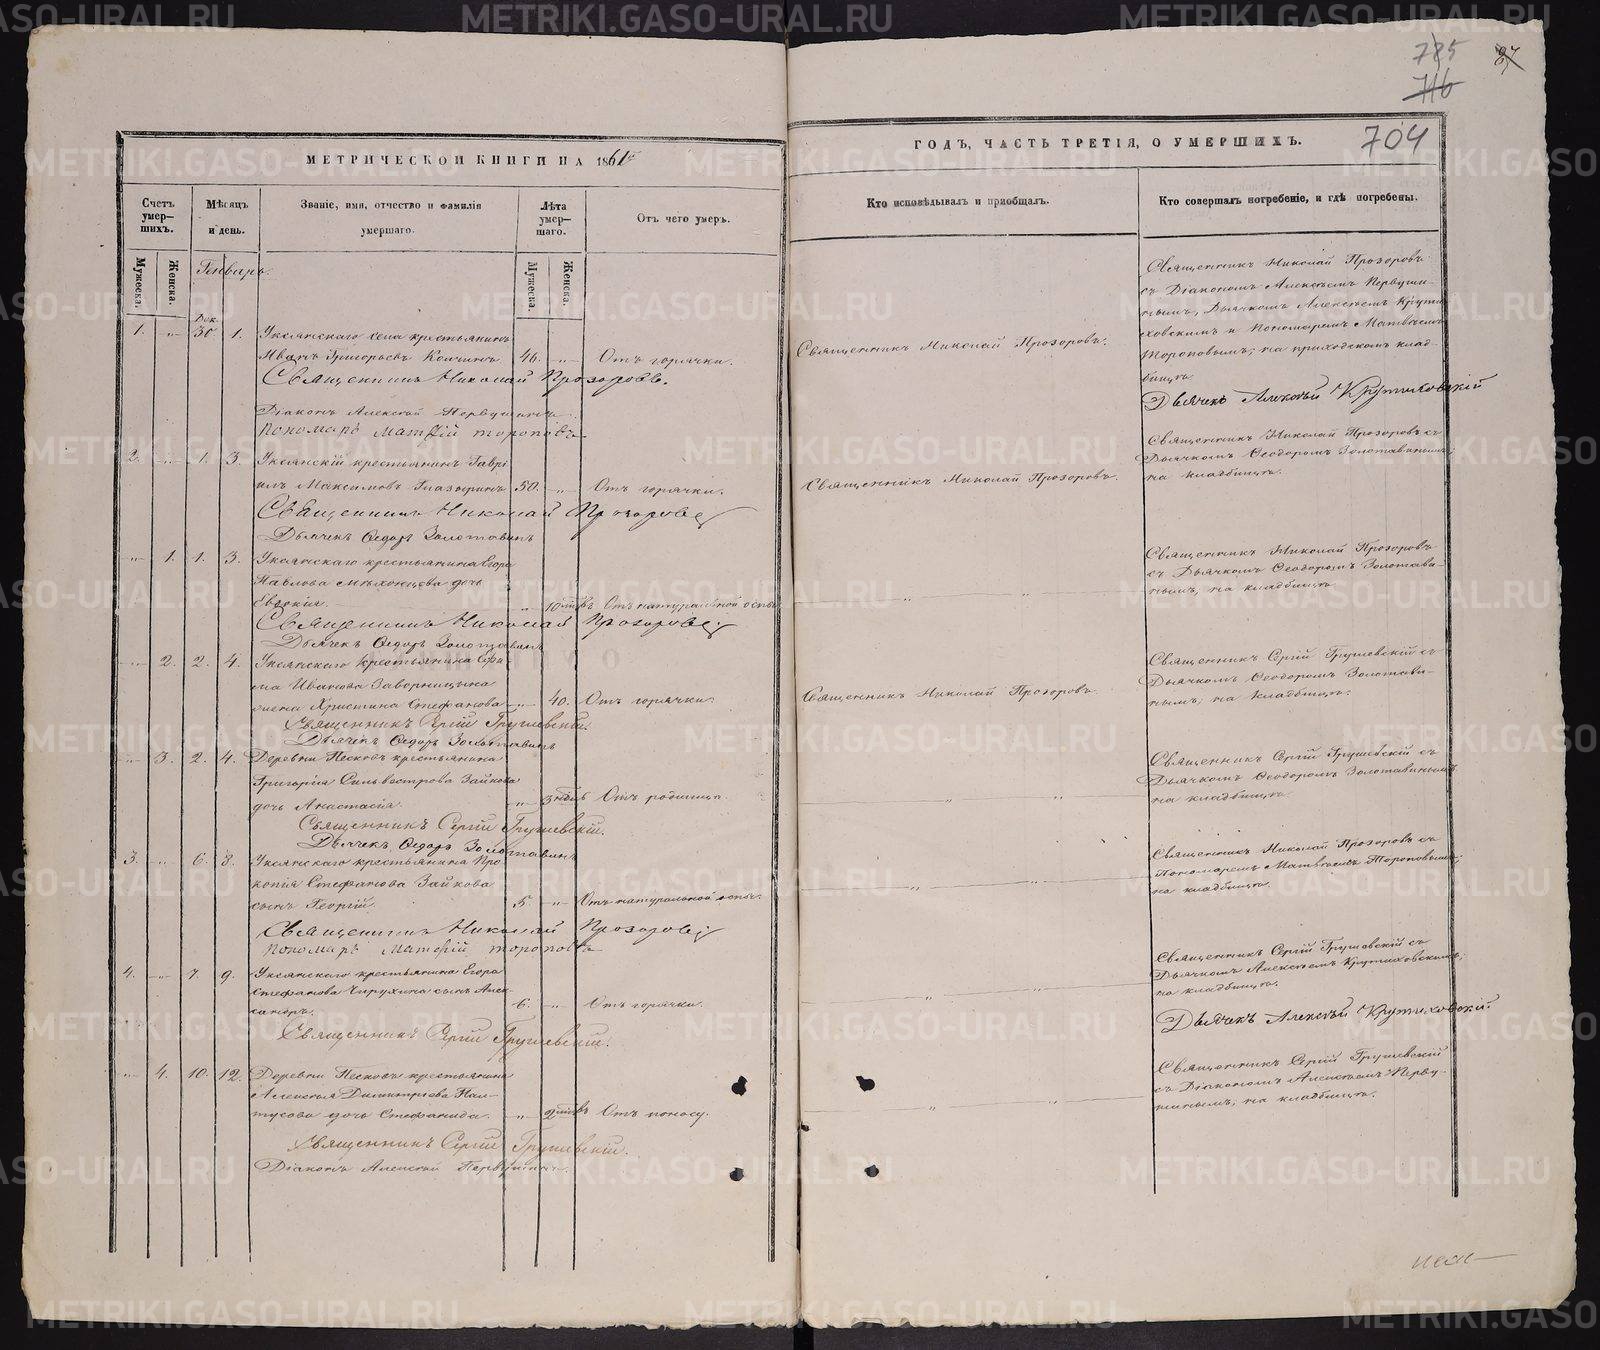 785
716
87
704
МЕТРИЧЕСКОЙ КНИГИ НА 1861й
ГОДЪ, ЧАСТЬ ТРЕТІЯ, О УМЕРШИХЪ.
Счетъ умер-шихъ.
Мѣсяцъ и день.
Званіе, имя, отчество и фамилія умершаго.
Лѣта умер-шаго.
Отъ чего умеръ.
Кто исповѣдывалъ и пріобщалъ.
Кто совершалъ погребеніе, и гдѣ погребены.
Мужеска.
Женска.
Генварь.
Мужеска.
Женска.
Дек.
1. „ 30. 1. Уксянскаго села крестьянинъ
Иванъ Григорьевъ Кокшинъ 46. „ Отъ горячки.
Священникъ Николай Прозоровъ.
Священникъ Николай Прозоровъ.
Діаконъ Алексѣй Первушинъ.
Пономарь Матѳій Тороповъ
Священникъ Николай Прозоровъ
съ Діакономъ Алексѣемъ Первуши-
нымъ, Дьячкомъ Алексѣемъ Крути-
ховскимъ и Пономаремъ Матвѣемъ
Тороповымъ; на приходскомъ клад-
бищѣ
Дьячекъ Алексѣй Крутиховскій
2. „ 1. 3. Уксянскій крестьянинъ Гаврі
илъ Максимовъ Глазыринъ 50. „ Отъ горячки.
Священникъ Николай Прозоровъ.
Священникъ Николай Прозоровъ
Дьячекъ Ѳедоръ Золотавинъ
Священникъ Николай Прозоровъ съ
Дьячкомъ Ѳеодоромъ Золотавинымъ;
на кладбищѣ.
„ 1. 1. 3. Уксянскаго крестьянина Егора
Павлова Мѣхонцова дочь
Евдокія. „ 10 Отъ натуральной оспы
Священникъ Николай Прозоровъ
Дьячекъ Ѳедоръ Золотавинъ
Священникъ Николай Прозоровъ
съ Дьячкомъ Ѳеодоромъ Золотави-
нымъ; на кладбищѣ
„ 2. 2. 4. Уксянскаго крестьянина
Иванова Заворницына
жена Христина Стефанова „ 40. Отъ горячки.
Священникъ Николай Прозоровъ.
Священникъ Сергій Грушевскій.
Дьячекъ Ѳедоръ Золотавинъ
Священникъ Сергій Грушевскій съ
Дьячкомъ Ѳеодоромъ Золотави-
нымъ; на кладбищѣ.
„ 3. 2. 4. Деревни Песковъ крестьянина
Григорія Сильвестрова Зайкова
дочь Анастасія. „ 3 Отъ родимца.
Священникъ Сергій Грушевскій.
Дьячекъ Ѳедоръ Золотавинъ
Священникъ Сергій Грушевскій съ
Дьячкомъ Ѳеодоромъ Золотавинымъ
на кладбищѣ.
3. „ 6. 8. Уксянскаго крестьянина Про
копія Стефанова Зайкова
сынъ Георгій. 5. „ Отъ натуральной оспы.
Священникъ Николай Прозоровъ
Пономарь Матѳій Тороповъ
Священникъ Николай Прозоровъ съ
Пономаремъ Матвѣемъ Тороповымъ;
на кладбищѣ.
4. „ 7. 9. Уксянскаго крестьянина Егора
Стефанова Чирухина сынъ Алек-
сандръ. 6. „ Отъ горячки.
Священникъ Сергій Грушевскій.
Священникъ Сергій Грушевскій съ
Дьячкомъ Алексѣемъ Крутиховскимъ;
на кладбищѣ.
Дьячекъ Алексѣй Крутиховскій.
„ 4. 10. 12. Деревни Песковъ крестьянина
Алексѣя Димитріева Пал-
тусова дочь Стефанида. „ 2 Отъ поносу.
Священникъ Сергій Грушевскій.
Діаконъ Алексѣй Первушинъ.
Священникъ Сергій Грушевскій
съ Діакономъ Алексѣемъ Перву-
шинымъ; на кладбищѣ.
METRIKI.GASO-URAL.RU